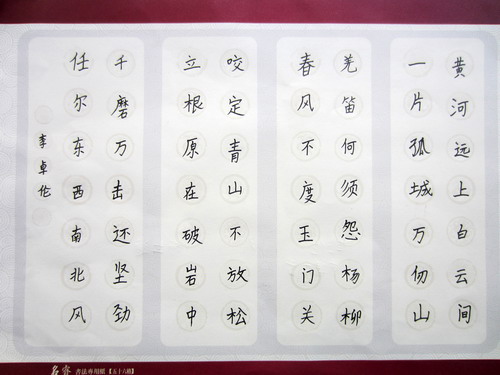 黄河远上白云间
一片孤城万仞山
羌笛何须怨杨柳
春风不度玉门关
咬定青山不放松
立根原在破岩中
千磨万击还坚劲
任尔东西南北风
李卓伦
書法專用紙【五十六格】